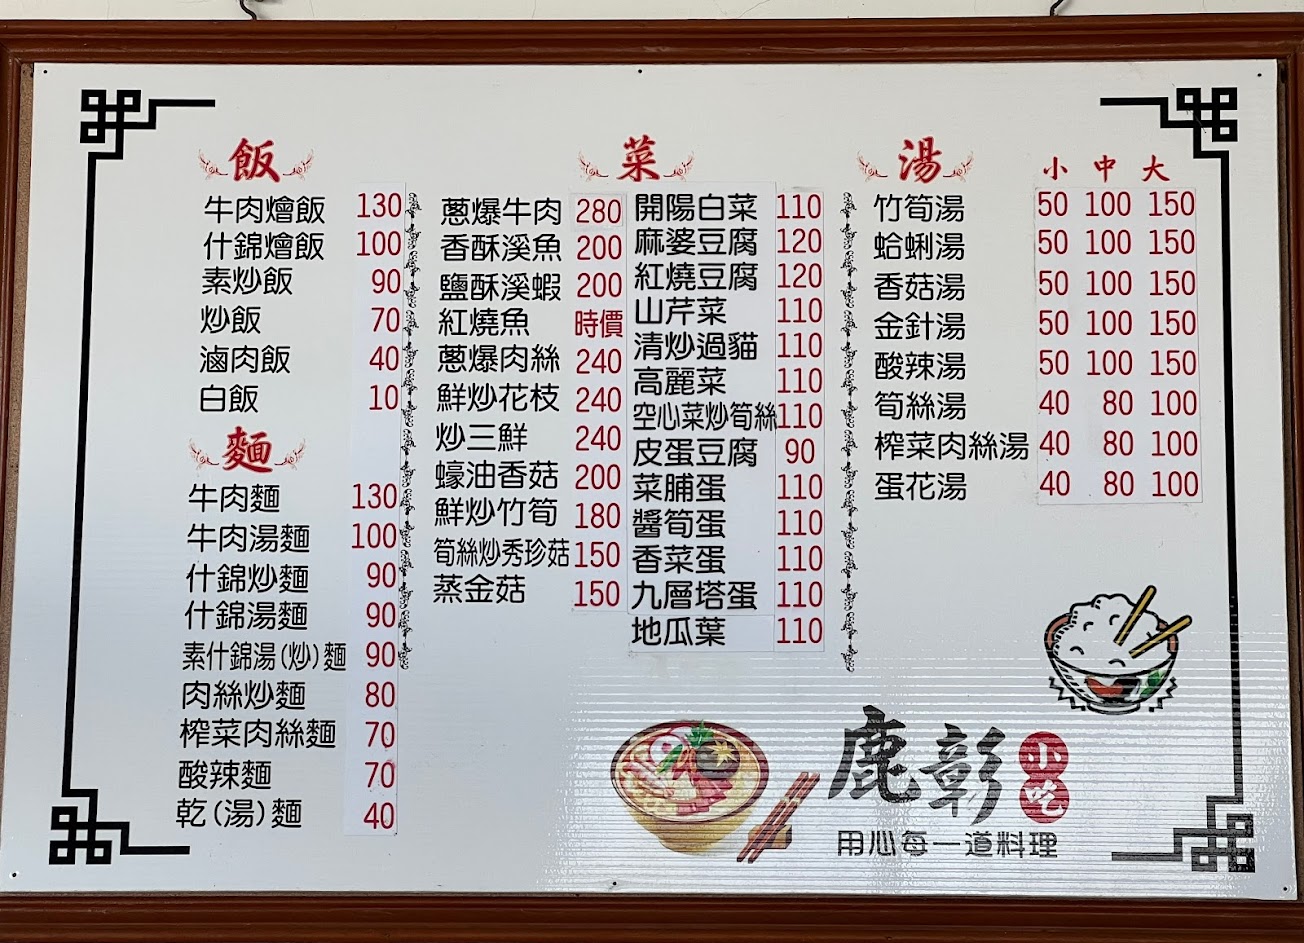 飯
牛肉燴飯 130
什錦燴飯 100
素炒飯 90
炒飯 70
滷肉飯 40
白飯 10
麵
牛肉麵 130
牛肉湯麵 100
什錦炒麵 90
什錦湯麵 90
素什錦湯(炒)麵 90
肉絲炒麵 80
榨菜肉絲麵 70
酸辣麵 70
乾(湯)麵 40
菜
蔥爆牛肉 280
香酥溪魚 200
鹽酥溪蝦 200
紅燒魚 時價
蔥爆肉絲 240
鮮炒花枝 240
炒三鮮 240
蠔油香菇 200
鮮炒竹筍 180
筍絲炒秀珍菇 150
蒸金菇 150
開陽白菜 110
麻婆豆腐 120
紅燒豆腐 120
山芹菜 110
清炒過貓 110
高麗菜 110
空心菜炒筍絲 110
皮蛋豆腐 90
菜脯蛋 110
醬筍蛋 110
香菜蛋 110
九層塔蛋 110
地瓜葉 110
湯 小 中 大
竹筍湯 50 100 150
蛤蜊湯 50 100 150
香菇湯 50 100 150
金針湯 50 100 150
酸辣湯 50 100 150
筍絲湯 40 80 100
榨菜肉絲湯 40 80 100
蛋花湯 40 80 100
鹿彰小吃
用心每一道料理